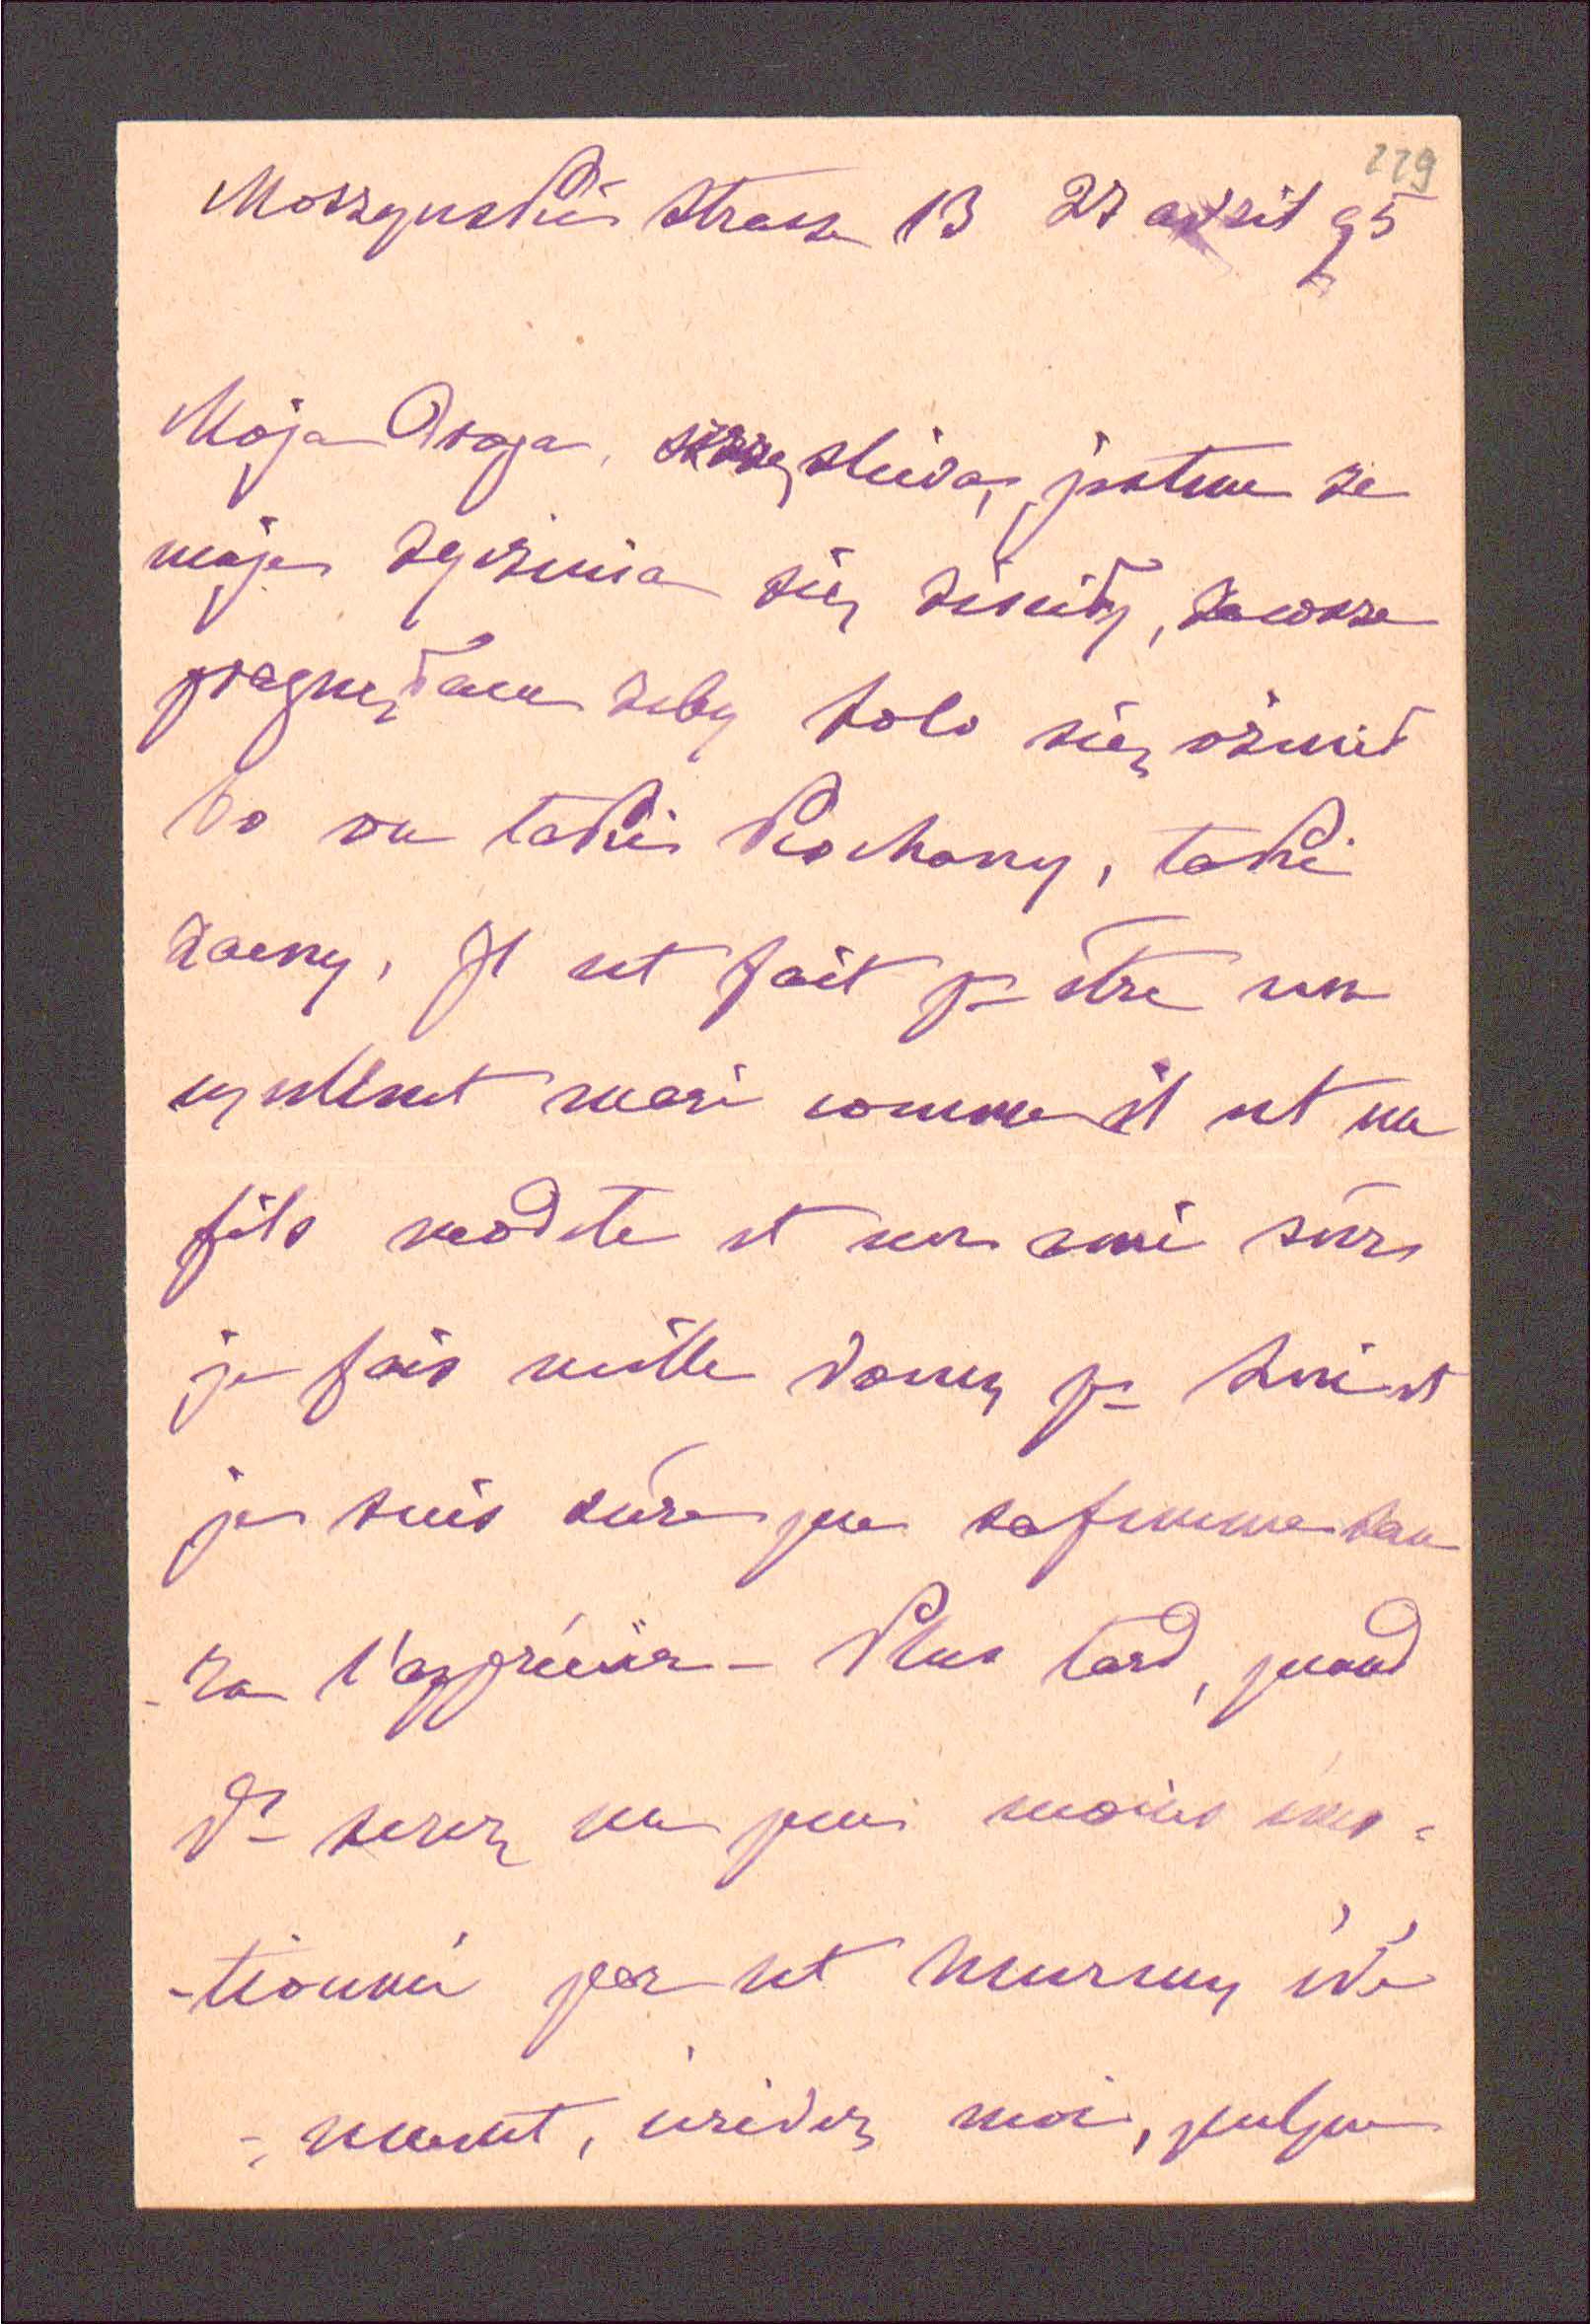 229
Moszynski Strasse 13 27 avril 95
Moja Droga, szczęsliwa jestem ze
moje zyczenia się zisciły, zawsze
pragnęłam zeby Lolo się ożenił
bo on taki Kochany, taki
zacny, Il est fait pr être un
excellent mari comme il est un
fils modèle et un ami sûr,
je fais mille vœux pr lui et
je suis sûre que sa femme sau
-ra l'apprécier - Plus tard, quand
Vs serez un peu moins émo-
-tionné par cet heureux évè
-nement, écrivez moi, quelques